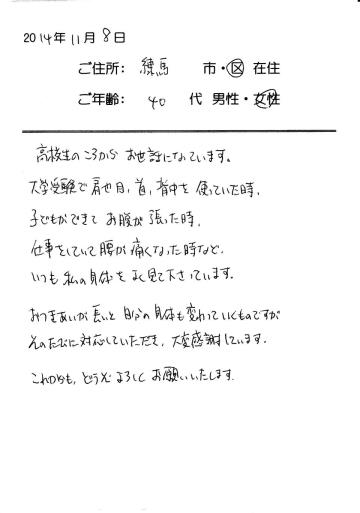 2014年11月8日
ご住所: 練馬 市・区 在住
ご年齢: 40 代 男性・女性
高校生のころから お世話になっています。
大学受験で肩や目、首、背中を使っていた時、
子どもができて お腹が張った時、
仕事をしていて腰が痛くなった時など、
いつも私の身体をよく見て下さっています。
おつきあいが長いと自分の身体も変わっていくものですが
そのたびに対応していただき、大変感謝しています。
これからも、どうぞよろしくお願いいたします。